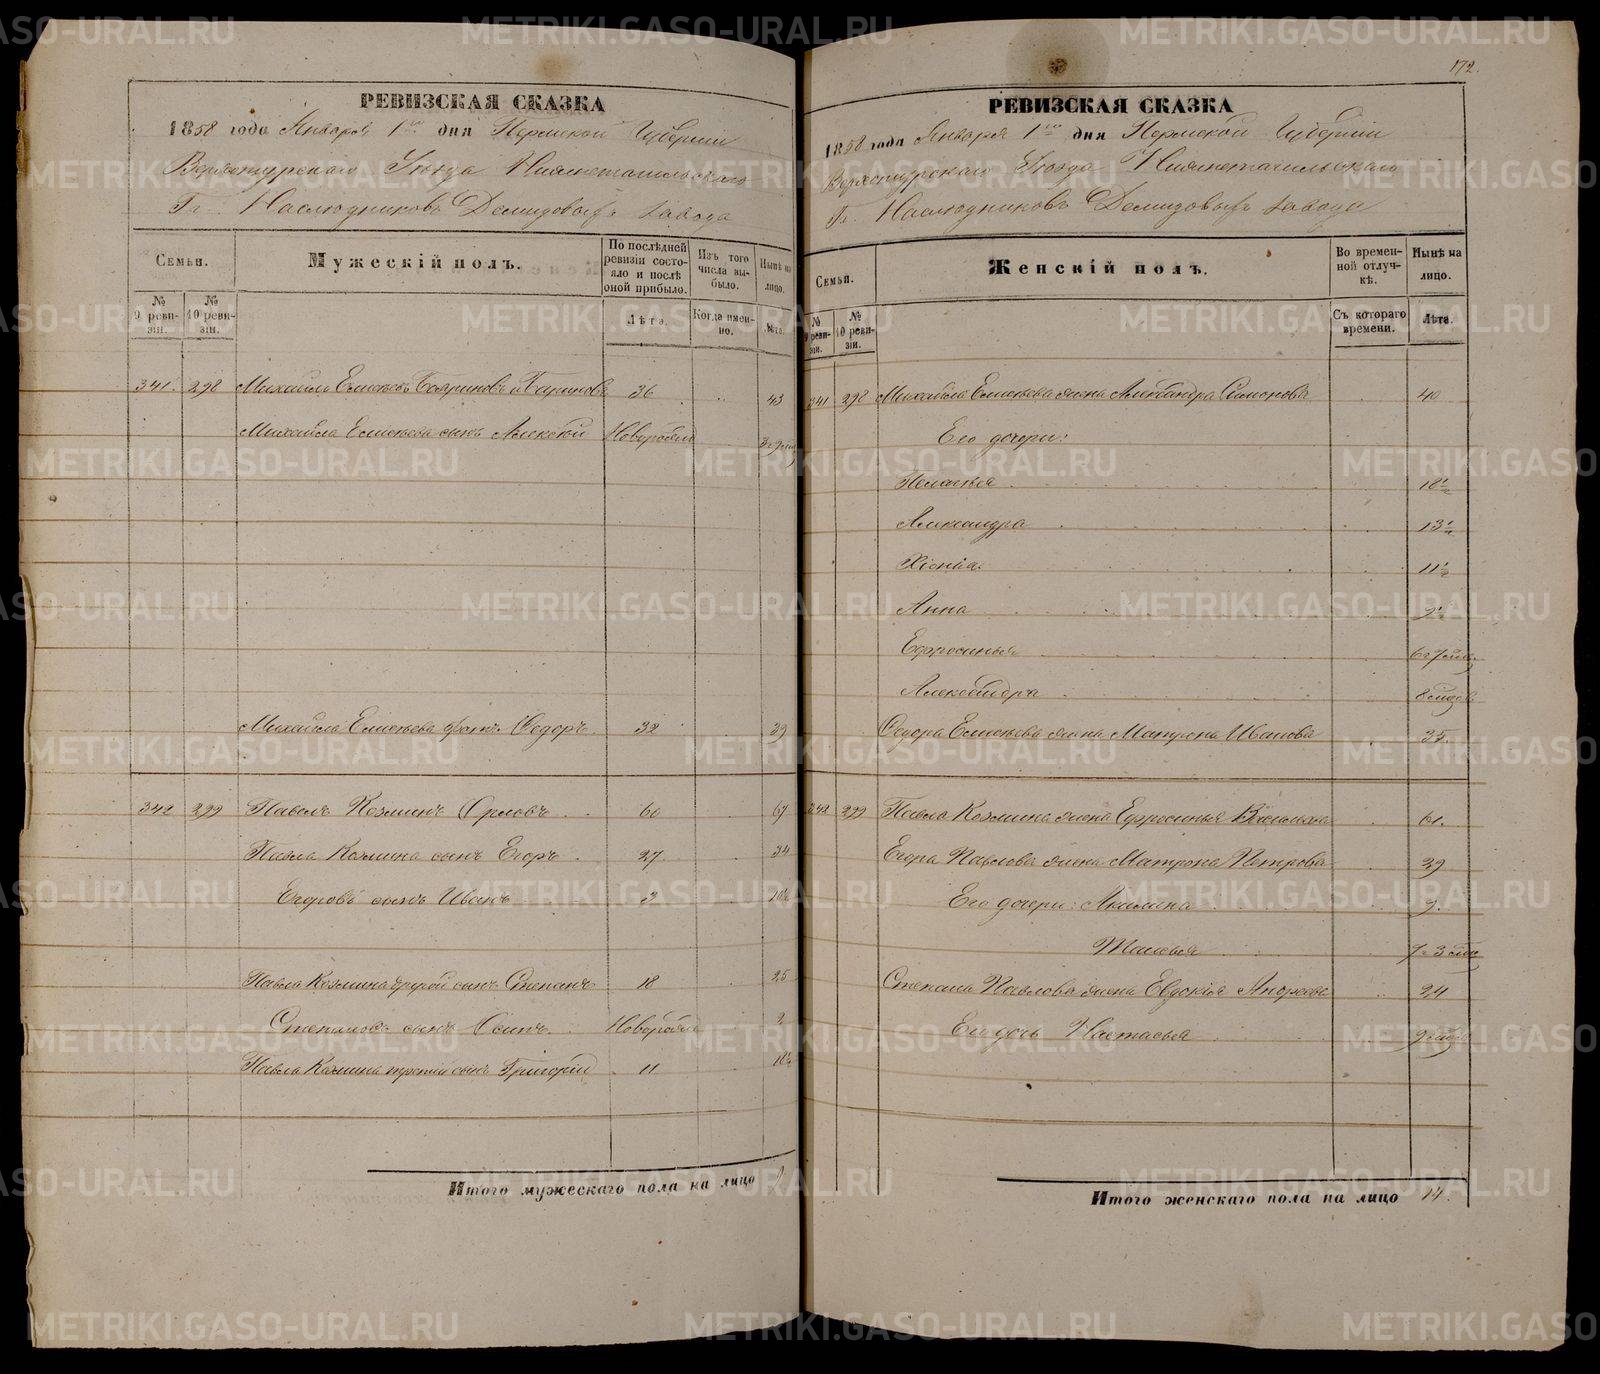 РЕВИЗСКАЯ СКАЗКА
1858 года Января 1го дня Пермской Губернiи
Верхотурскаго Уѣзда Нижнетагильскаго
Гг. Наслѣдниковъ Демидовыхъ завода
Семьи.
Мужескiй полъ.
По послѣдней ревизiи состояло и послѣ оной прибыло.
Изъ того числа выбыло.
Нынѣ на лицо.
№ 9 ревизiи.
№ 10 ревизiи.
Лѣта.
Когда именно.
Лѣта.
341. 298 Михайло Елисѣевъ Бояриновъ и Бариновъ 36 43
Михайла Елисѣева сынъ Алексѣй Новорожд
Михайла Елисѣева братъ Ѳедоръ 32 39
342 299 Павелъ Козминъ Орловъ 60 67
Павла Козмина сынъ Егоръ 27 34
Егоровъ сынъ Иванъ 3 10½
Павла Козмина другой сынъ Степанъ 18 25
Степановъ сынъ Осипъ Новорожд 2
Павла Козмина третiй сынъ Григорiй 11
Итого мужескаго пола на лицо 9
172.
РЕВИЗСКАЯ СКАЗКА
1858 года Января 1го дня Пермской Губернiи
Верхотурскаго Уѣзда Нижнетагильскаго
Гг. Наслѣдниковъ Демидовыхъ завода
Семьи.
Женскiй полъ.
Во временной отлучкѣ.
Нынѣ на лицо.
№ 9 ревизiи.
№ 10 ревизiи.
Съ котораго времени.
Лѣта.
341 298 Михайла Елисѣева жена Александра Симонова 40
Его дочери:
Пелагѣя 18½
Александра 13½
Ксенiя 11½
Анна 9½
Ефросинья 6 7 мѣс.
Александра 8 мѣсяц
Ѳедора Елисѣева жена Матрена Иванова 35.
342 299 Павла Козмина жена Ефросинья Васильева 61.
Егора Павлова жена Матрона Петрова 39
Его дочери: Акилина 9.
Таисья 7 3 мѣс
Степана Павлова жена Евдокiя Андреева 24
Его дочь Настасья 9 мѣсяц
Итого женскаго пола на лицо 14.
METRIKI.GASO-URAL.RU